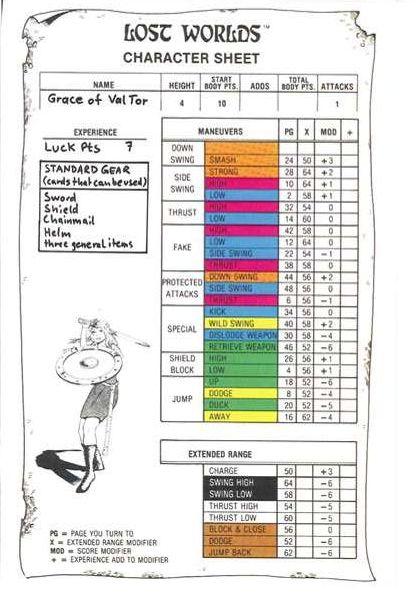 LOST WORLDS™
CHARACTER SHEET
NAME HEIGHT START BODY PTS. ADDS TOTAL BODY PTS. ATTACKS
Grace of Val Tor 4 10 1
EXPERIENCE
Luck Pts 7
STANDARD GEAR
(cards that can be used)
Sword
Shield
Chainmail
Helm
three general items
MANEUVERS PG X MOD +
DOWN SWING SMASH 24 50 +3
SIDE SWING STRONG 28 64 +2
HIGH 10 64 +1
LOW 2 58 +1
THRUST HIGH 32 54 0
LOW 14 60 0
FAKE HIGH 42 58 0
LOW 12 64 0
SIDE SWING 22 54 -1
THRUST 38 58 0
PROTECTED ATTACKS DOWN SWING 44 56 +2
SIDE SWING 48 56 0
THRUST 6 56 -1
SPECIAL KICK 34 56 0
WILD SWING 40 58 +2
DISLODGE WEAPON 30 58 -4
RETRIEVE WEAPON 46 52 -6
SHIELD BLOCK HIGH 26 56 +1
LOW 4 56 +1
JUMP UP 18 52 -6
DODGE 8 52 -4
DUCK 20 52 -5
AWAY 16 62 -4
EXTENDED RANGE
CHARGE 50 +3
SWING HIGH 64 -6
SWING LOW 58 -6
THRUST HIGH 54 -5
THRUST LOW 60 -5
BLOCK & CLOSE 56 0
DODGE 52 -6
JUMP BACK 62 -6
PG = PAGE YOU TURN TO
X = EXTENDED RANGE MODIFIER
MOD = SCORE MODIFIER
+ = EXPERIENCE ADD TO MODIFIER